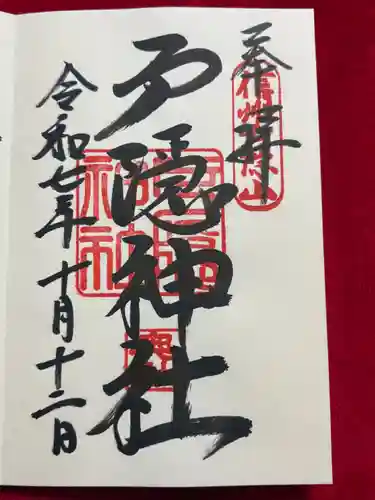 奉拝
信州戸隠山
戸隠神社
令和七年十月十二日